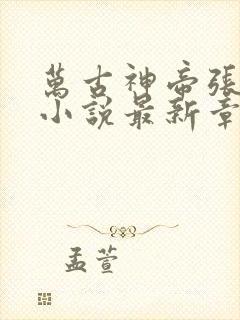 萬古神帝張
小說最新章
孟萱